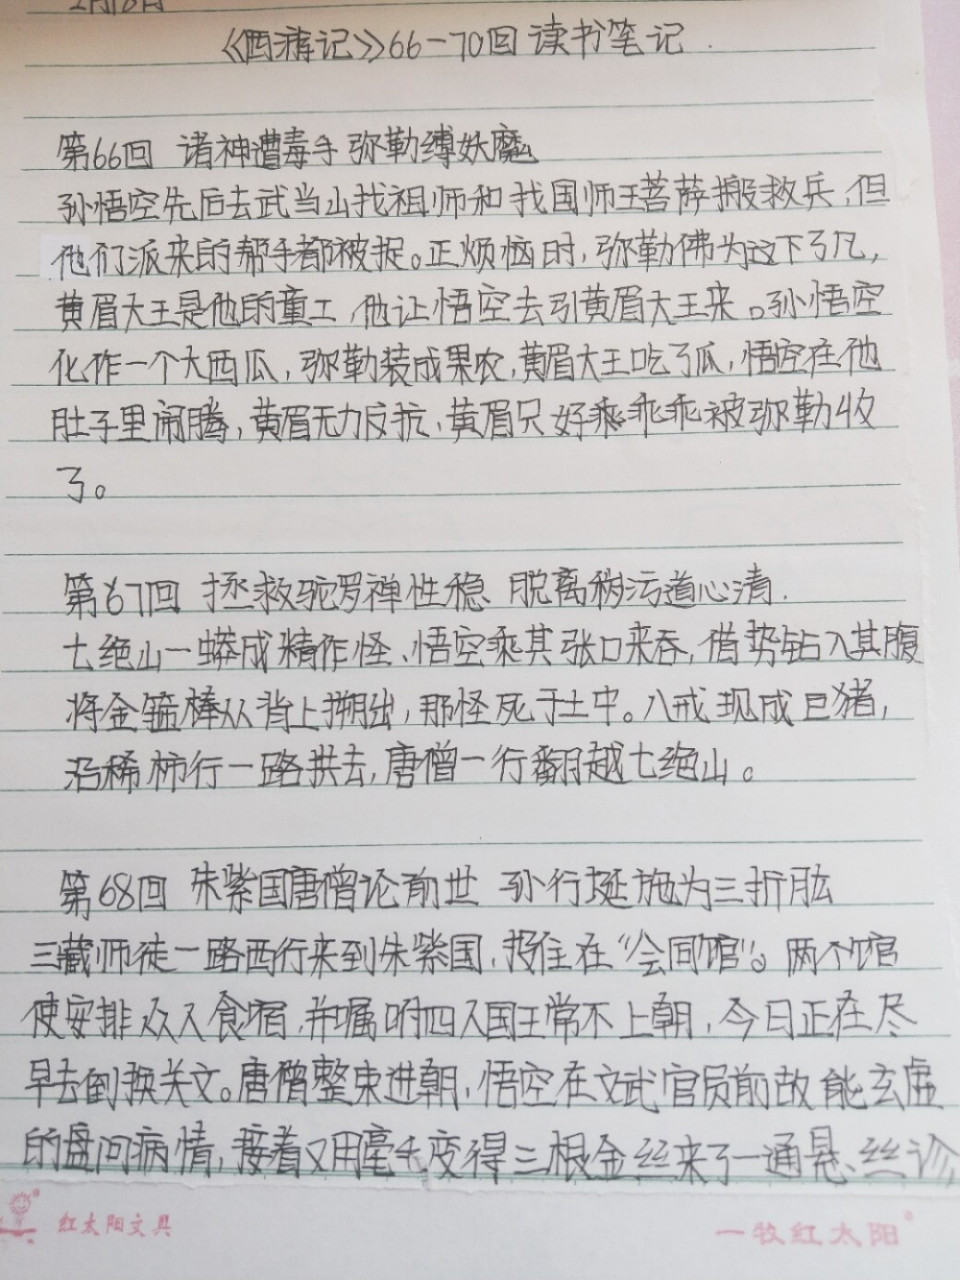 2月18日
《西游记》66-70回读书笔记.
第66回 诸神遭毒手 弥勒缚妖魔
孙悟空先后去武当山找祖师和找国师王菩萨搬救兵,但
他们派来的帮手都被捉。正烦恼时,弥勒佛为这下了凡,
黄眉大王是他的童工,他让悟空去引黄眉大王来。孙悟空
化作一个大西瓜,弥勒装成果农,黄眉大王吃了瓜,悟空在他
肚子里闹腾,黄眉无力反抗,黄眉只好乖乖乖被弥勒收
了。
第67回 拯救驼罗禅性稳 脱离秽污道心清.
七绝山一蟒成精作怪、悟空乘其张口来吞,借势钻入其腹
将金箍棒从背上搠出,那怪死于土中。八戒现成巨猪,
沿稀柿衕一路拱去,唐僧一行翻越七绝山。
第68回 朱紫国唐僧论前世 孙行者施为三折肱
三藏师徒一路西行来到朱紫国,投住在“会同馆”。两个馆
使安排众人食宿,并嘱咐四人国王常不上朝,今日正在尽
早去倒换关文。唐僧整束进朝,悟空在文武官员前故能玄虚
的盘问病情,接着又用毫毛变得三根金丝来了一通悬丝诊
红太阳文具
一牧红太阳